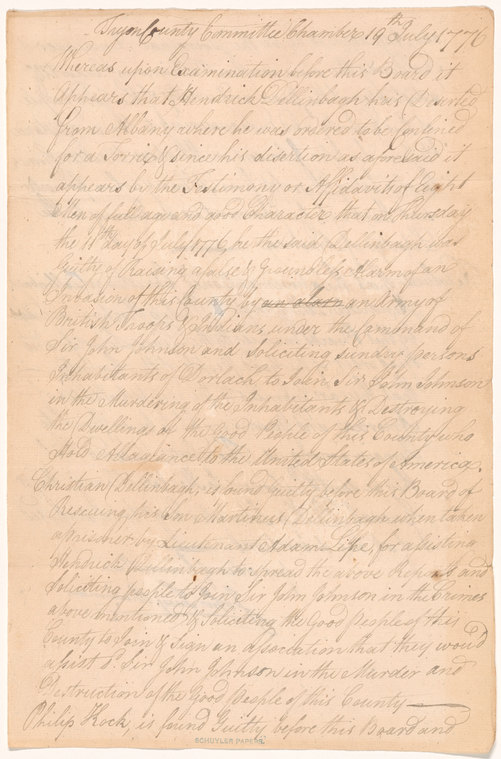 Tryon County Committee Chamber 19th July 1776
Whereas upon Examination before this Board it
Appears that Hendrick Dillinbagh has Diserted
from Albany where he was ordered to be Confined
for a Torrie & since his disertion as aforesaid it
appears by the Testimony or Affidavits of Eight
Men of full age and good Character, that on Thursday
the 11th day of July 1776, he the said Dellinbagh was
Guilty of Raising a false & Groundless Alarm of an
Invasion of this County by an alarm an Army of
British Troops & Indians, under the Command of
Sir John Johnson and Soliciting sundry persons
Inhabitants of Dorlach to Join Sir John Johnson
in the Murdering of the Inhabitants & Destroying
the Dwellings of the Good People of this County who
Hold Allagiance to the United States of America.
Christian Dellinbagh, is found guilty before this Board of
Rescuing his Son Martinus Dillinbagh when taken
a prisoner by Lieutenant Adam Lipe, for assisting
Hendrick Dillinbagh to spread the above Reports and
Soliciting people to Join Sir John Johnson in the Crimes
above mentioned & Soliciting the Good people of this
County to Join & Sign an Association that they would
assist Sir John Johnson in the Murder and
Distruction of the Good people of this County
Philip Hock, is found Guilty before this Board and
SCHUYLER PAPERS.